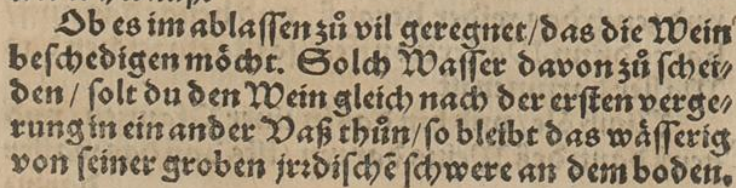 Ob es im ablassen zů vil geregnet/das die Wein
beschedigen möcht. Solch Wasser davon zů schei⸗
den/ solt du den Wein gleich nach der ersten verge⸗
rung in ein ander Vaß thůn/so bleibt das wässerig
von seiner groben jrꝛdischē schwere an dem boden.